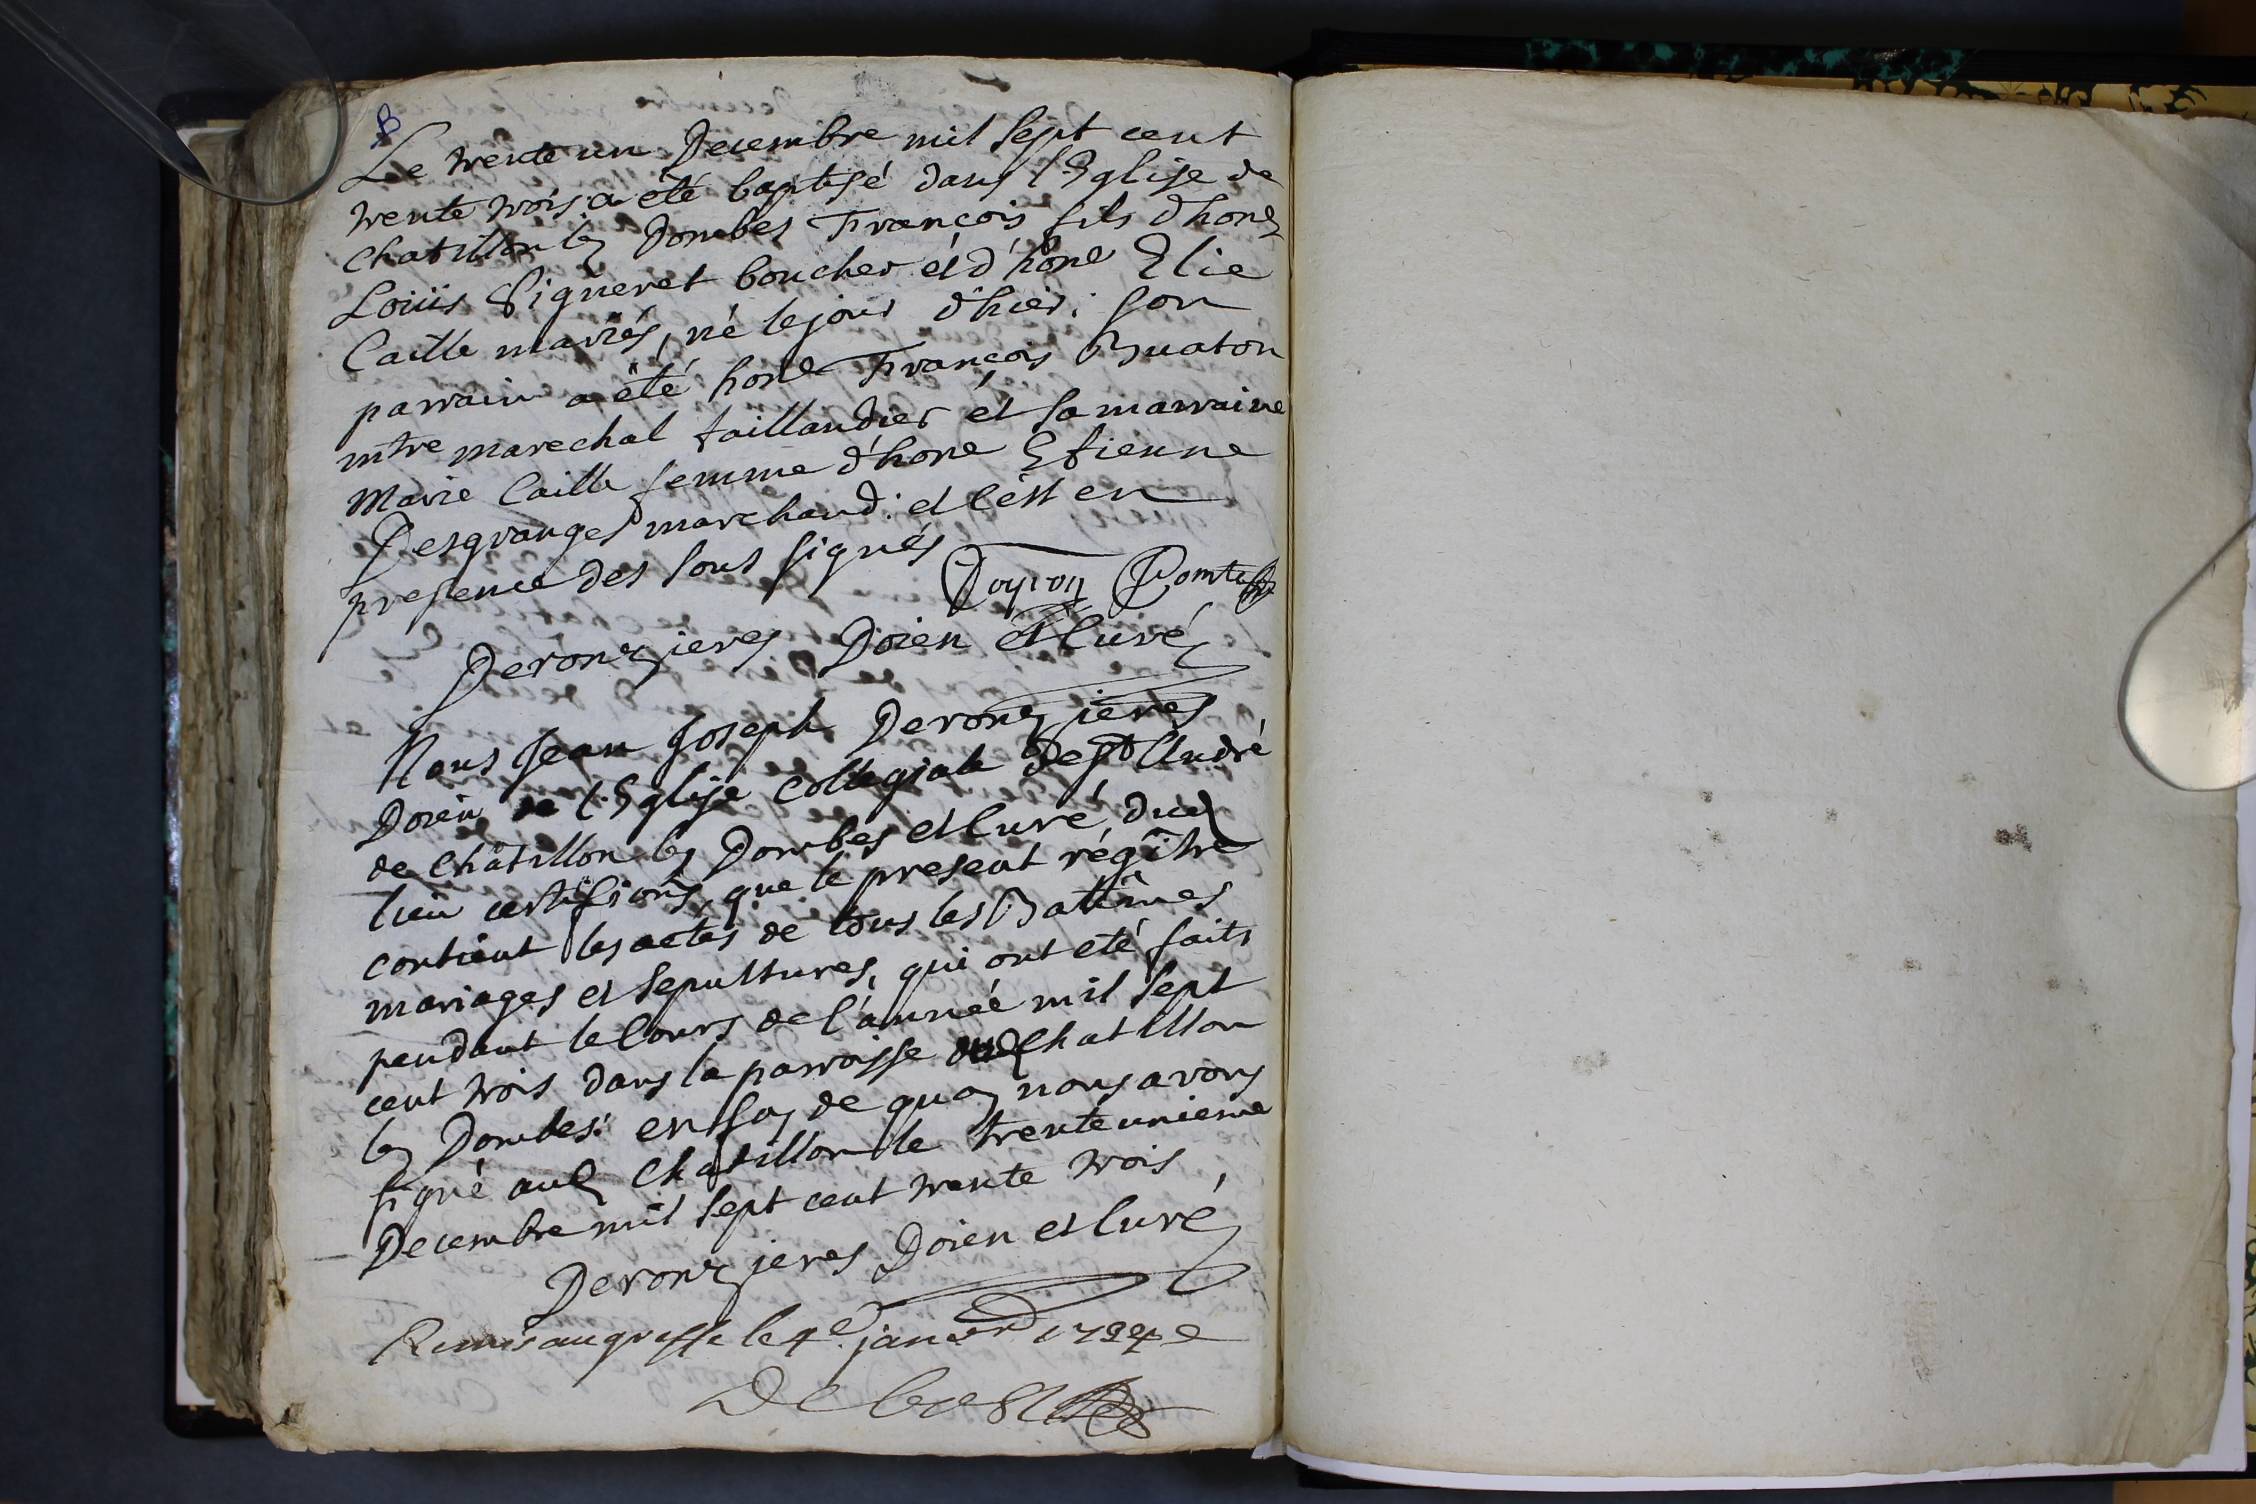 B
Le trente un Decembre mil sept cent
trente trois a été baptisé dans l'Eglise de
Chatillon les Dombes François fils d'hone
Loüis Pigneret boucher et d'hone Elie
Caille mariés, né le jour d'hier; son
parrain a été hone François Buaton
mtre marechal taillandier et sa marraine
Marie Caille femme d'hone Estienne
Desgranges marchand: et c'est en
presence des sous signés
Doyron Comte
Deronzieres Doien et Curé
Nous Jean Joseph Deronzieres
Doien de l'Eglise Collegiale de st André
de Châtillon les Dombes et Curé dud
lieu certifions, que le present régître
contient les actes de tous les Batêmes
mariages et sepultures, qui ont eté faits
pendant le Cours de l'année mil sept
cent trois dans la parroisse dud Chatillon
les Dombes: en foy de quoy nous avons
signé aud Chatillon le trente unieme
Decembre mil sept cent trente trois
Deronzieres Doien et Curé
Remis au greffe le 4e janvr 1734